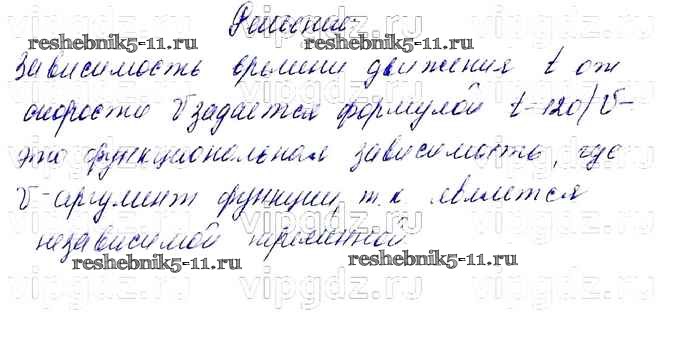 Решение:
reshebnik5-11.ru reshebnik5-11.ru
Зависимость времени движения t от
скорости V задается формулой t=120/V-
это функциональная зависимость, где
V-аргумент функции, т.к является
независимой переменной
reshebnik5-11.ru reshebnik5-11.ru
vipgdz.ru vipgdz.ru vipgdz.ru